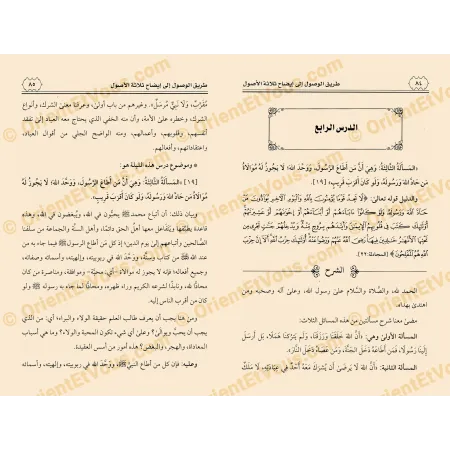 ٨٤
طريق الوصول إلى إيضاح ثلاثة الأصول
الدرس الرابع
«المسألة الثالثة: وهي أن من أطاع الرسول، ووحد الله؛ لا يجوز له موالاة
من حاد الله ورسوله، ولو كان أقرب قريب». [١٩].
والدليل قوله تعالى: ﴿لا تجد قوما يؤمنون بالله واليوم الآخر يوادون من
حاد الله ورسوله ولو كانوا آباءهم أو أبناءهم أو إخوانهم أو عشيرتهم
أولئك كتب في قلوبهم الإيمان وأيدهم بروح منه ويدخلهم جنات تجري من
تحتها الأنهار خالدين فيها رضي الله عنهم ورضوا عنه أولئك حزب الله ألا إن حزب
الله هم المفلحون﴾ [المجادلة: ٢٢].
الشرح
الحمد لله، والصلاة والسلام على رسول الله، وعلى آله وصحبه ومن
اهتدى بهداه.
مضى معنا شرح مسألتين من هذه المسائل الثلاث:
المسألة الأولى وهي: «أن الله خلقنا ورزقنا، ولم يتركنا هملا، بل أرسل
إلينا رسولا، فمن أطاعه دخل الجنة، ومن عصاه دخل النار».
المسألة الثانية: «أن الله لا يرضى أن يشرك معه أحد في عبادته، لا ملك
٨٥
طريق الوصول إلى إيضاح ثلاثة الأصول
مقرب، ولا نبي مرسل». وغيرهم من باب أولى، وعرفنا معنى الشرك، وأنواع
الشرك، وخطره على الأمة، وأن منه الخفي الذي يحتاج معه العباد إلى تفقد
أنفسهم، وقلوبهم، وأعمالهم، ومنه الواضح الجلي من أقوال العباد،
واعتقاداتهم، وأفعالهم.
* وموضوع درس هذه الليلة هو:
[١٩] «المسألة الثالثة: وهي أن من أطاع الرسول، ووحد الله؛ لا يجوز له
موالاة من حاد الله ورسوله، ولو كان أقرب قريب».
وبيان ذلك: أن أتباع محمد ﷺ يحبون في الله، ويبغضون في الله، وهذه
قاعدة يطبقها ويتفاعل معها أهل الحق دائما، وأهل السنة والجماعة من سلفنا
الصالحين وأتباعهم إلى يوم الدين؛ إذ كل من أطاع الرسول ﷺ فيما جاء به من
عند الله من كتاب وسنة، ووحد الله في ربوبيته، وإلهيته، وأسمائه وصفاته،
وجميع أفعاله؛ فإنه لا يجوز له موالاة -أي: محبة- وموافقة، ومناصرة من كان
محادا لله، ونابذا لشرعه الكريم وراء ظهره، ومحادا لما جاء به رسوله ولو
كان من أقرب قريب.
ومن هنا يجب أن يعرف طالب العلم حقيقة الولاء والبراء؛ أي: من الذي
يجب أن يحب ويوالى؟ وعلى أي شيء تكون المحبة والولاء؟ وما هي أسباب
المعاداة، والهجر، والبغض؟ هذه أمور من أسس العقيدة.
وعليه: فإن كل من أطاع النبي ﷺ، ووحد الله في ربوبيته، وإلهيته، وأسمائه
OrientEtVous.com